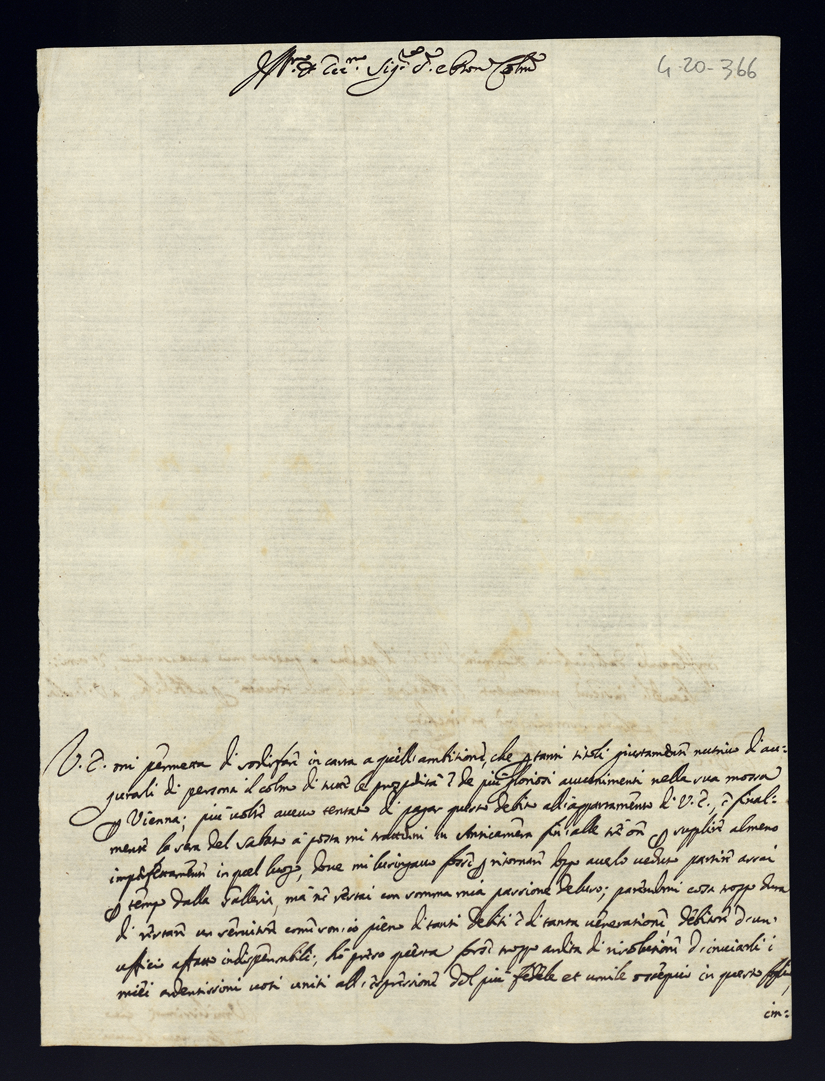 Ill.mo et Ecc.mo Sig.re S.re e Pron Colmo
4-20-366
V. E. mi permetta di sodisfare in carta a quell'ambitione, che p tanti titoli giustamente nutrivo di au-
gurarli di persona il colmo di tutte le prosperità e de più gloriosi avvenimenti nella sua mossa
p Vienna; più volte avevo tentato di pagar questo debito all'appartamento di V. E., e final-
mente la sera del Sabato a posta mi trattenni in Anticamera fin'alle tre ore p supplire almeno
imperfettamente in quel luogo, dove mi lusingavo forse p ritornare dopo averlo veduto partire assai
p tempo dalla Galleria, ma ne restai con somma mia passione deluso; parendomi cosa troppo dura
di restare un servitore come son io pieno di tanti debiti e di tanta veneratione, debitore d'un
ufficio affatto indispensabile; hò preso questa forse troppo ardita di risolutione d'inviarli i
miei ardentissimi voti uniti all'espressione del più fedele et umile ossequio in questo foglio,
im-